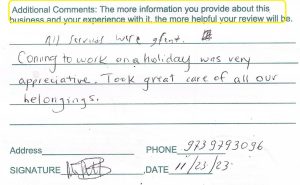 Additional Comments: The more information you provide about this
business and your experience with it, the more helpful your review will be.
All services were great.
Coming to work on a holiday was very
appreciative. Took great care of all our
belongings.
Address
PHONE 9739793096
SIGNATURE
,DATE 11/23/23